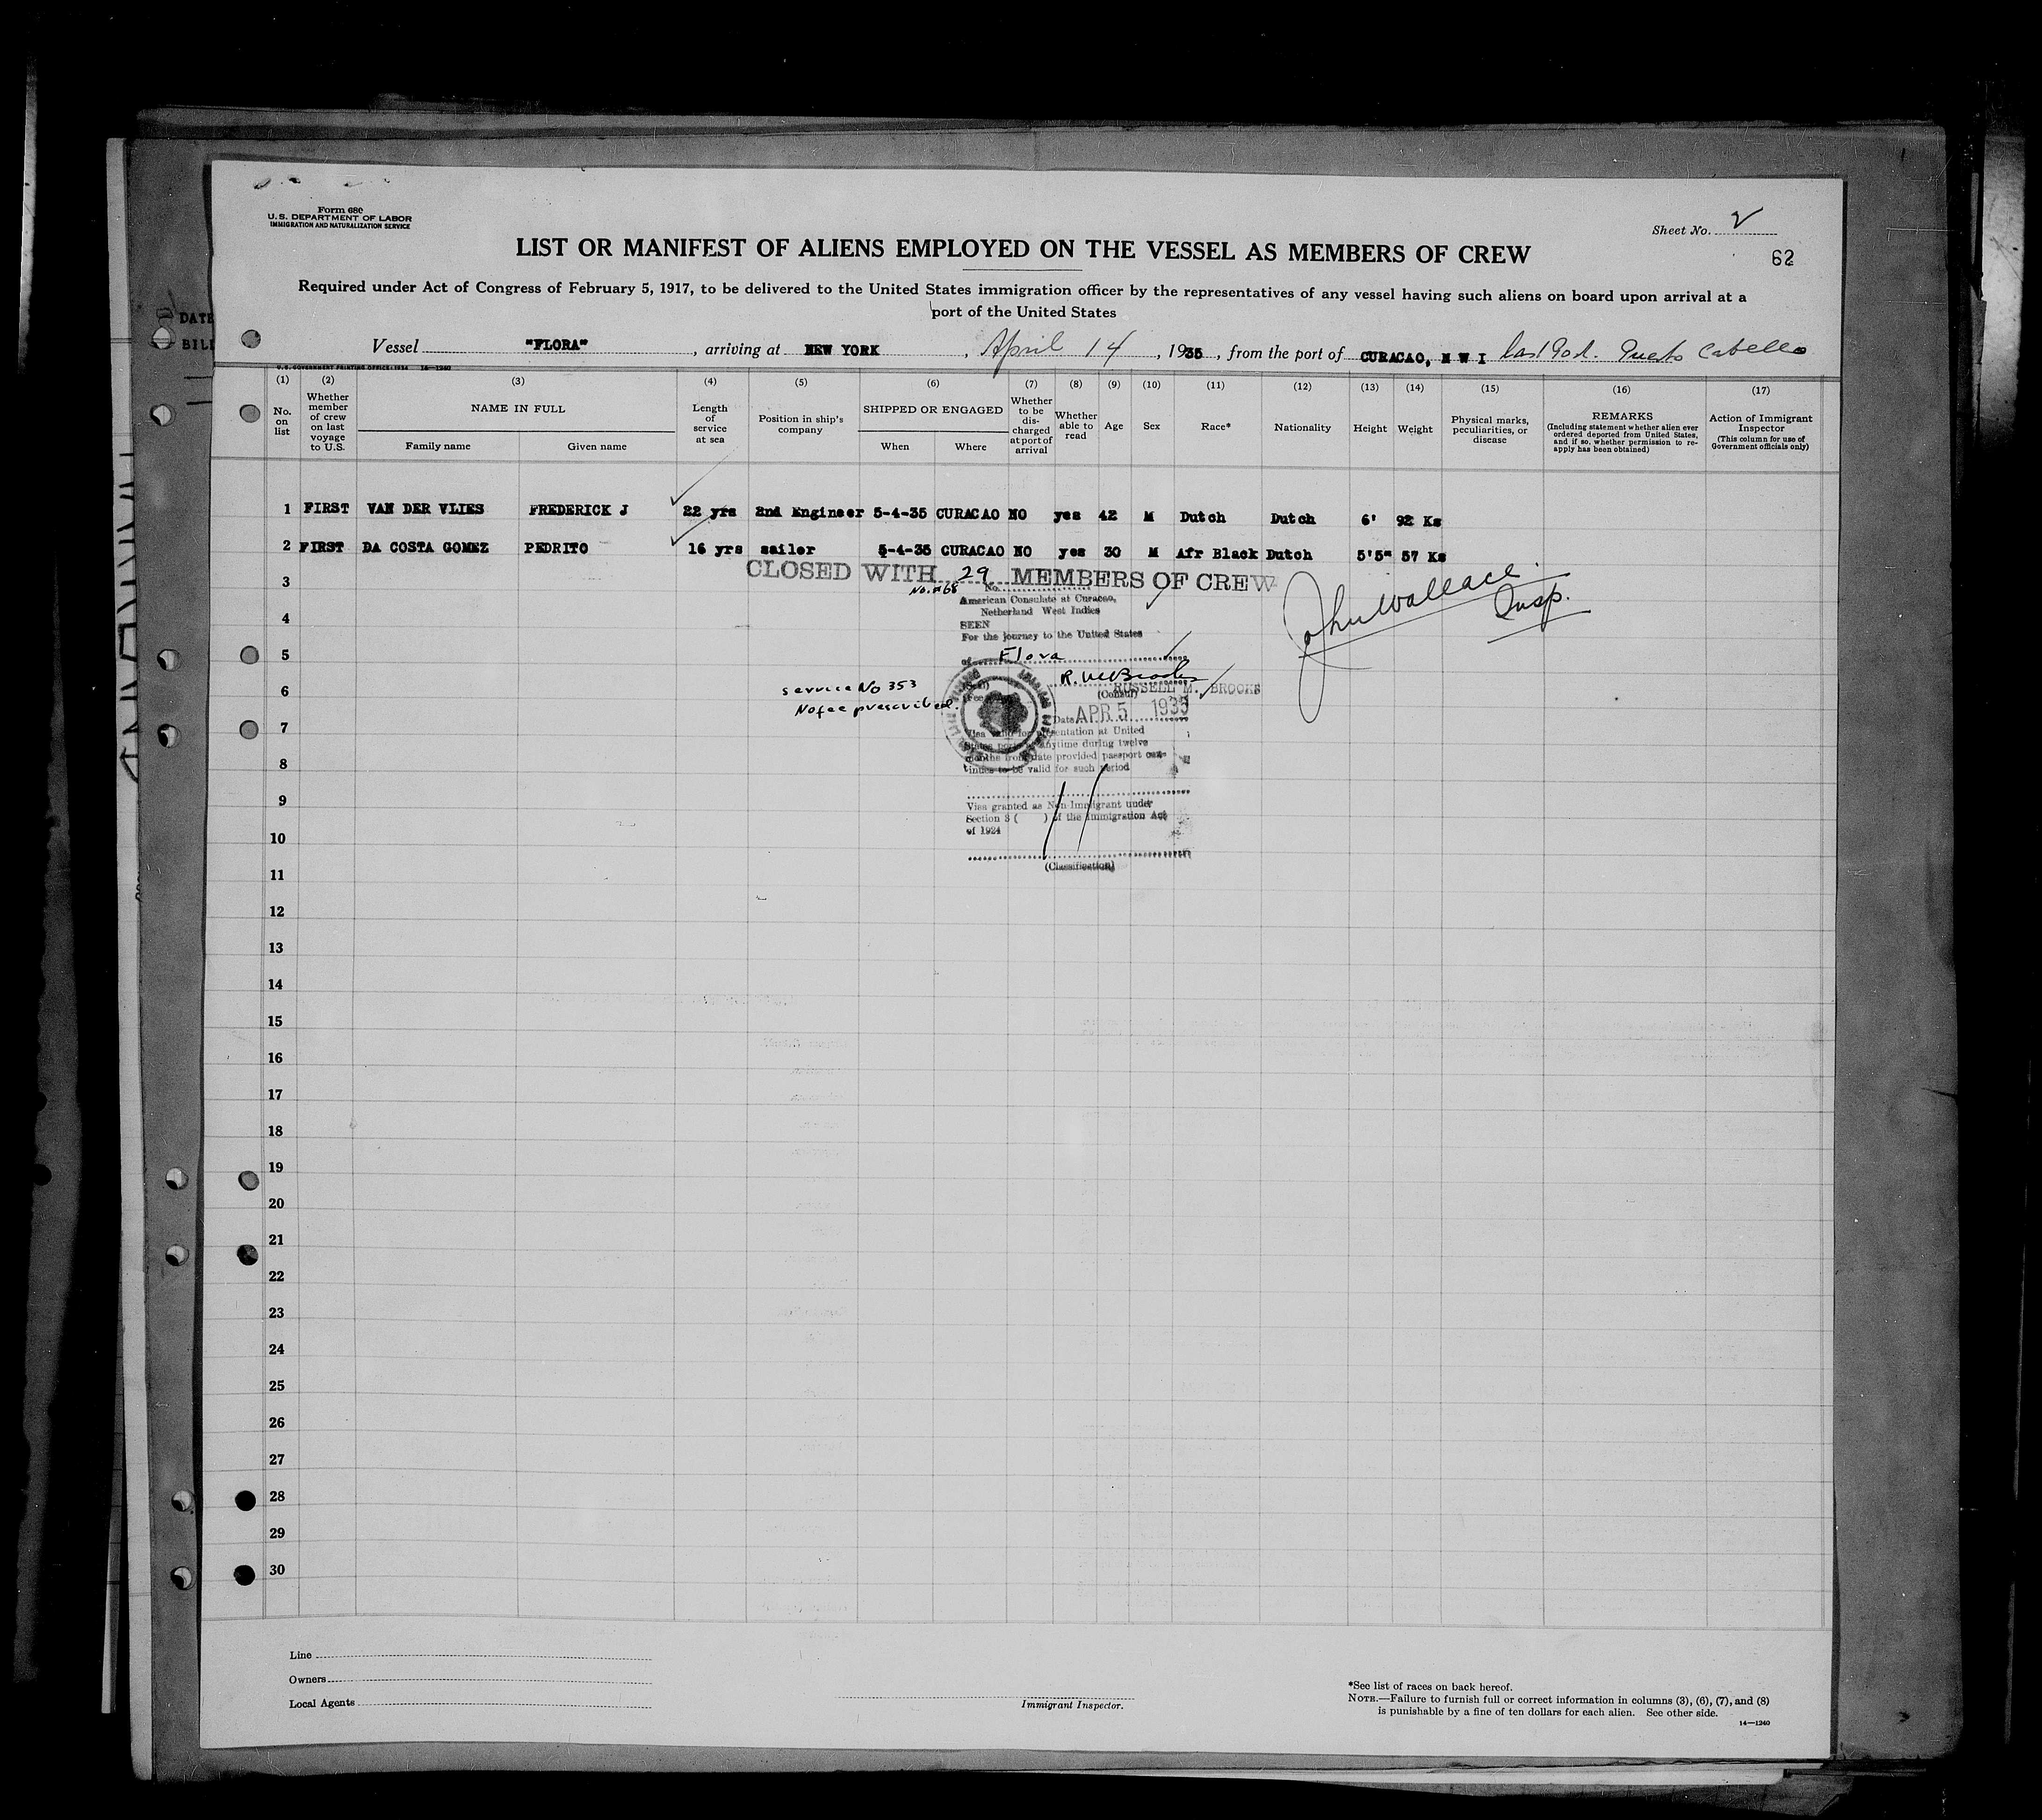 Form 680
U.S. DEPARTMENT OF LABOR
IMMIGRATION AND NATURALIZATION SERVICE
Sheet No. 2
62
LIST OR MANIFEST OF ALIENS EMPLOYED ON THE VESSEL AS MEMBERS OF CREW
Required under Act of Congress of February 5, 1917, to be delivered to the United States immigration officer by the representatives of any vessel having such aliens on board upon arrival at a
port of the United States
DATE
BILL
Vessel "FLORA", arriving at NEW YORK, April 14, 1935, from the port of CURACAO, N W I last Port. Puerto Cabello
U.S. GOVERNMENT PRINTING OFFICE: 1934 14—1240
(1) (2) (3) (4) (5) (6) (7) (8) (9) (10) (11) (12) (13) (14) (15) (16) (17)
No. on list
Whether member of crew on last voyage to U.S.
NAME IN FULL
Family name Given name
Length of service at sea
Position in ship's company
SHIPPED OR ENGAGED
When Where
Whether to be discharged at port of arrival
Whether able to read
Age
Sex
Race*
Nationality
Height
Weight
Physical marks, peculiarities, or disease
REMARKS
(Including statement whether alien ever ordered deported from United States, and if so, whether permission to reapply has been obtained)
Action of Immigrant Inspector
(This column for use of Government officials only)
1 FIRST VAN DER VLIES FREDERICK J 22 yrs 2nd Engineer 5-4-35 CURACAO NO yes 42 M Dutch Dutch 6' 92 Ks
2 FIRST DA COSTA GOMEZ PEDRITO 16 yrs sailor 5-4-35 CURACAO NO yes 30 M Afr Black Dutch 5'5" 57 Ks
CLOSED WITH 29 MEMBERS OF CREW
John Wallace.
Insp.
3
No. #68 No.
American Consulate at Curacao,
Netherland West Indies
4
SEEN
For the journey to the United States
5
of Flora
R. M Brooks
6
service No 353
RUSSELL M. BROOKS
(Consul)
No fee prescribed.
Date APR 5 1935
7
Visa valid for presentation at United
States ports anytime during twelve
months from date provided passport con-
tinues to be valid for such period
8
9
Visa granted as Non-Immigrant under
Section 3 ( ) of the Immigration Act
of 1924
10
(Classification)
11
12
13
14
15
16
17
18
19
20
21
22
23
24
25
26
27
28
29
30
Line
Owners
Local Agents
Immigrant Inspector.
*See list of races on back hereof.
NOTE.—Failure to furnish full or correct information in columns (3), (6), (7), and (8)
is punishable by a fine of ten dollars for each alien. See other side.
14—1240